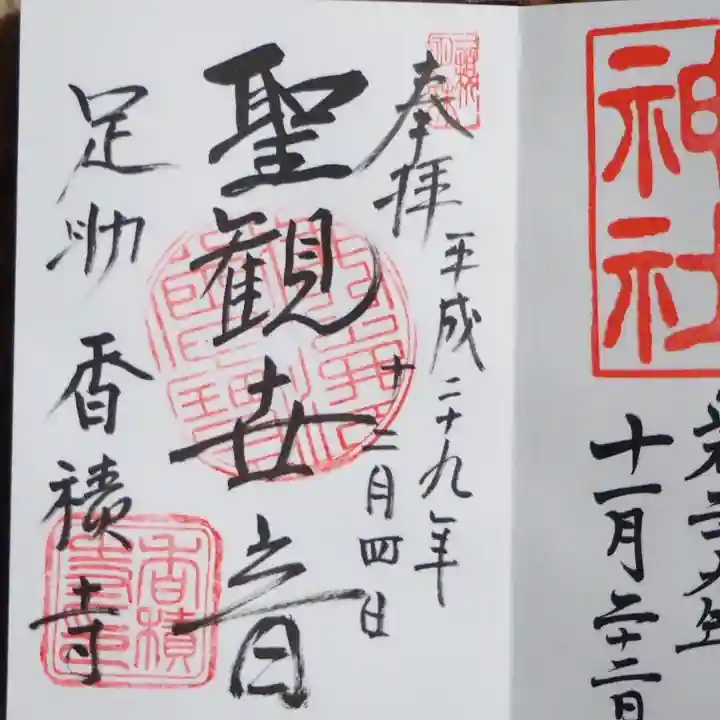 神社
十一月二十三日
奉拝
平成二十九年
十二月四日
聖観世音
足助 香積寺
香積